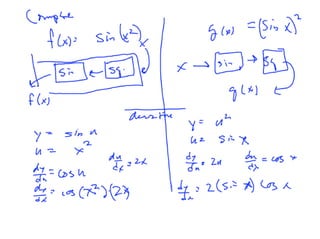 Compare
f(x) = sin(x²)
x
sin ← sq.
f(x)
g(x) = (sin x)²
x → sin → sq
g(x)
derivative
y = sin u
u = x²
du/dx = 2x
dy/du = cos u
dy/dx = cos(x²)(2x)
y = u²
u = sin x
dy/du = 2u
du/dx = cos x
dy/dx = 2(sin x) cos x